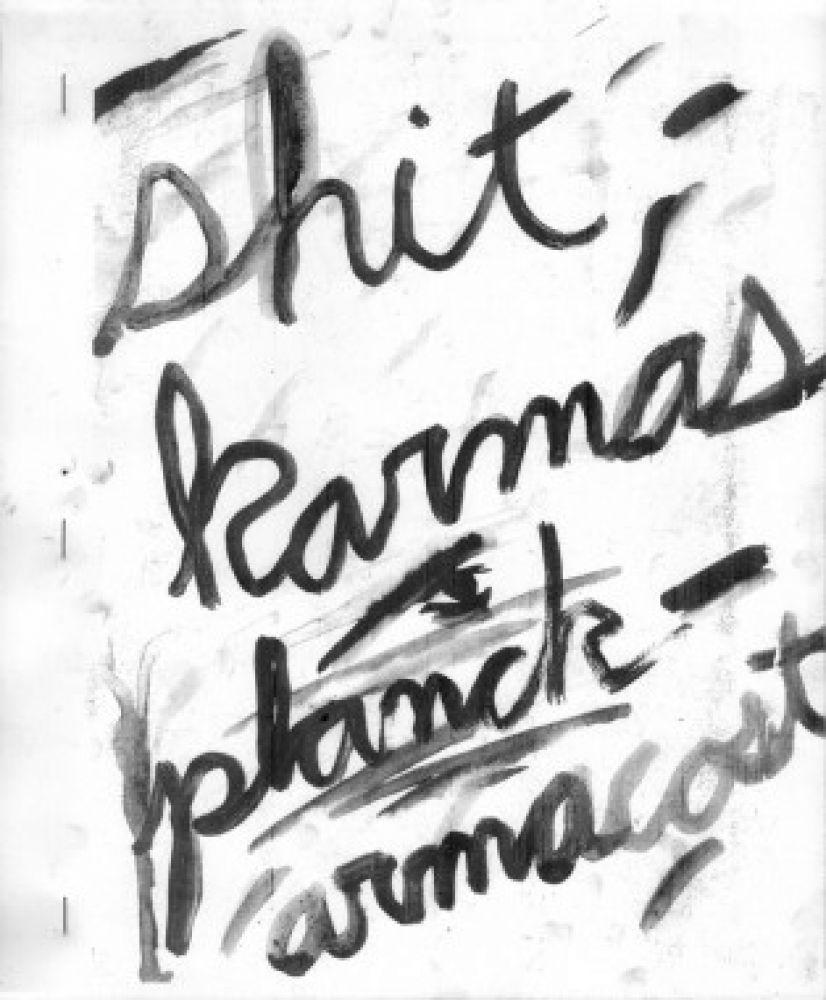 shit;
karmas
planck-
armacost